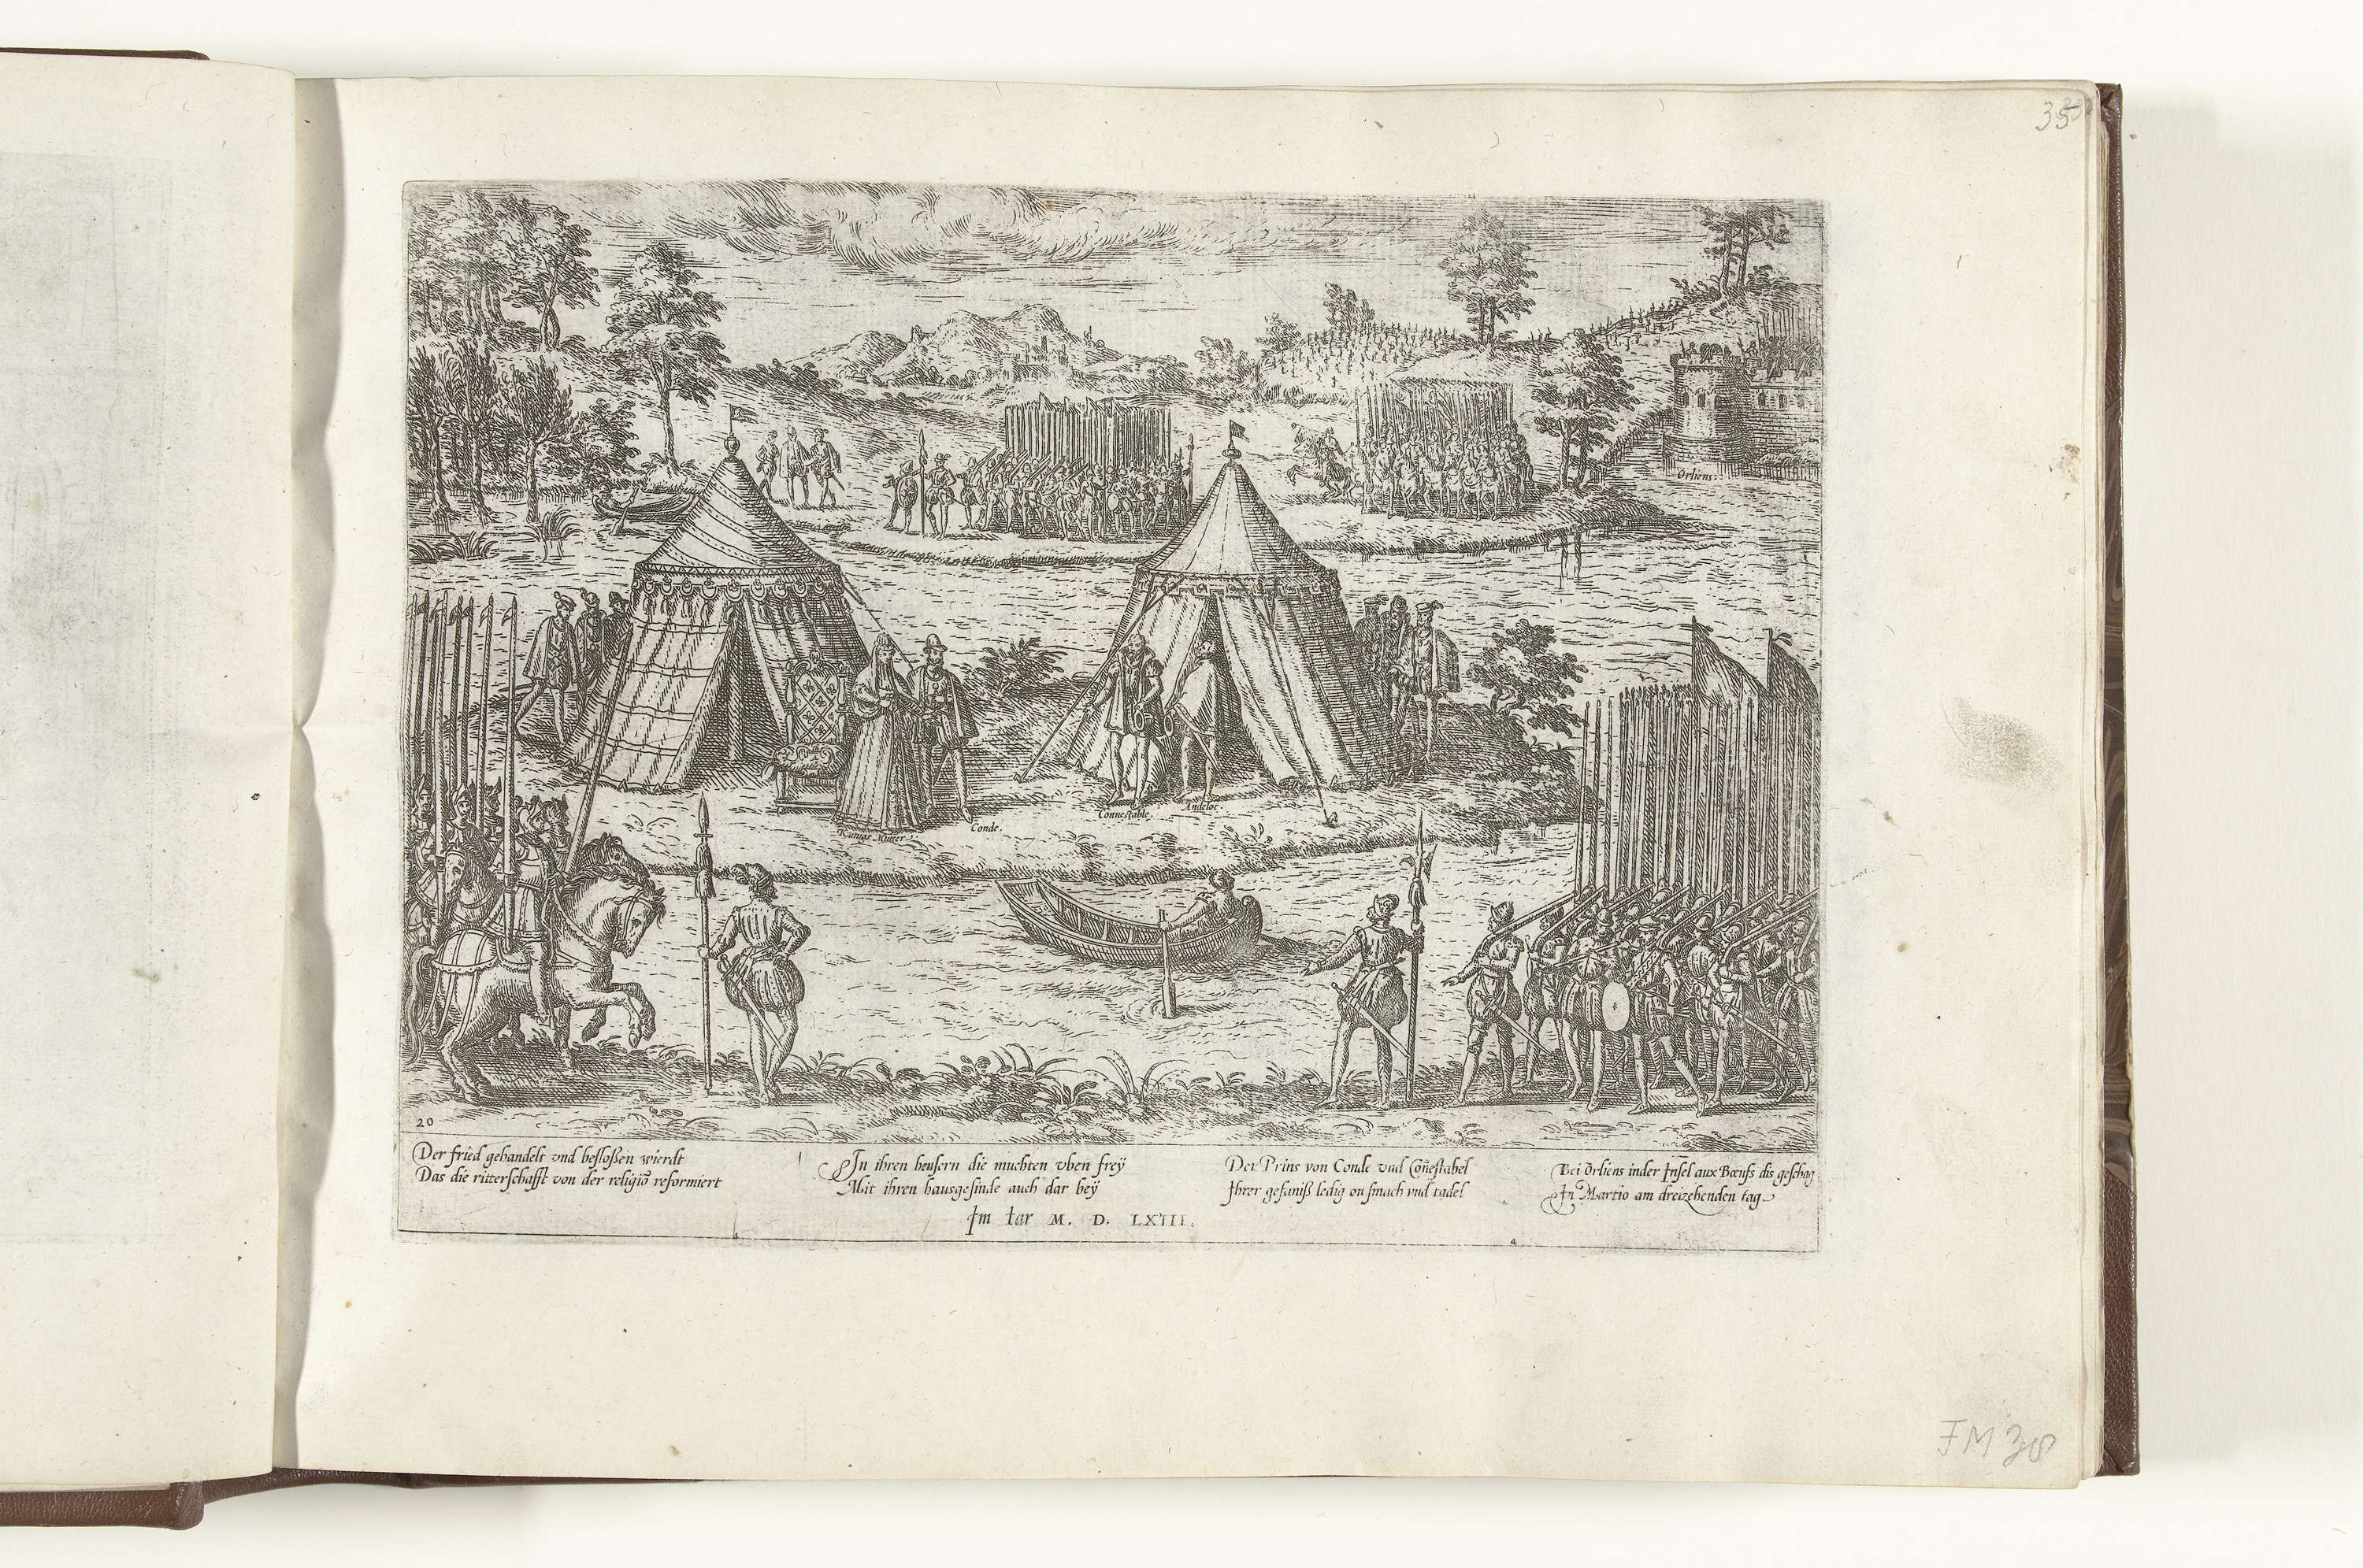 35
Orliens.
Andeloe.
Connestable.
Conde.
Kunigs Muter.
20
Der fried gehandelt vnd besloßen wierdt
Das die ritterschafft von der religiō reformiert
In ihren heusern die muchten vben freÿ
Mit ihren hausgesinde auch dar beÿ
Der Prins von Conde vnd Coñestabel
Ihrer gefaniß ledig on smach vnd tadel
Bei Orliens inder Insel aux Bœufs dis geschag
In Martio am dreizehenden tag
Im Iar M. D. LXIII.
FM 38